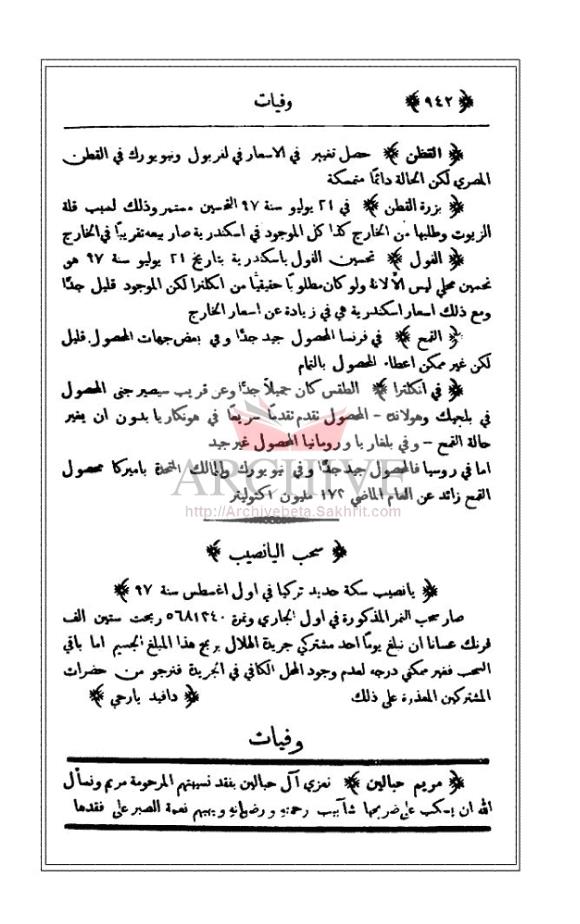 ﴿ ٩٤٢ ﴾ وفيات
﴿ القطن ﴾ حصل تغيير في الاسعار في لفربول ونيويورك في القطن
المصري لكن الحالة دائمًا متمسكة
﴿ بزرة القطن ﴾ في ٢١ يوليو سنة ٩٧ التحسين مستمر وذلك لسبب قلة
الزيوت وطلبها من الخارج كذا كل الموجود في اسكندرية صار بيعه تقريبًا في الخارج
﴿ الفول ﴾ تحسين الفول باسكندرية بتاريخ ٢١ يوليو سنة ٩٧ هو
تحسين محلي ليس الا لانهُ ولو كان مطلوبًا حقيقيًا من انكلترا لكن الموجود قليل جدًا
ومع ذلك اسعار اسكندرية هي في زيادة عن اسعار الخارج
﴿ القمح ﴾ في فرنسا المحصول جيد جدًا وفي بعض جهات المحصول قليل
لكن غير ممكن اعطاء المحصول بالتمام
﴿ في انكلترا ﴾ الطقس كان جميلاً جدًا وعن قريب سيصير جنى المحصول
في بلجيك وهولانده – المحصول تقدم تقدمًا سريعًا في هونكاريا بدون ان يغير
حالة القمح – وفي بلغاريا ورومانيا المحصول غير جيد
اما في روسيا فالمحصول جيد جدًا وفي نيويورك والممالك المتحدة باميركا محصول
القمح زائد عن العام الماضي ١٧٢ مليون اكتوليتر
ARCHIVE
http://Archivebeta.Sakhrit.com
﴿ سحب اليانصيب ﴾
﴿ يانصيب سكة حديد تركيا في اول اغسطس سنة ٩٧ ﴾
صار سحب النمر المذكورة في اول الجاري ونمرة ٥٦٨١٣٤٠ ربحت ستين الف
فرنك عسانا ان نبلغ يومًا احد مشتركي جريدة الهلال بربح هذا المبلغ الجسيم اما باقي
السحب فغير ممكني درجه لعدم وجود المحل الكافي في الجريدة فنرجو من حضرات
المشتركين المعذرة على ذلك ﴿ دافيد يارحي ﴾
وفيات
﴿ مريم حبالين ﴾ نعزي آل حبالين بفقد نسيبتهم المرحومة مريم ونسأل
الله ان يسكب على ضريحها شآبيب رحمته ورضوانه ويهبهم نعمة الصبر على فقدها